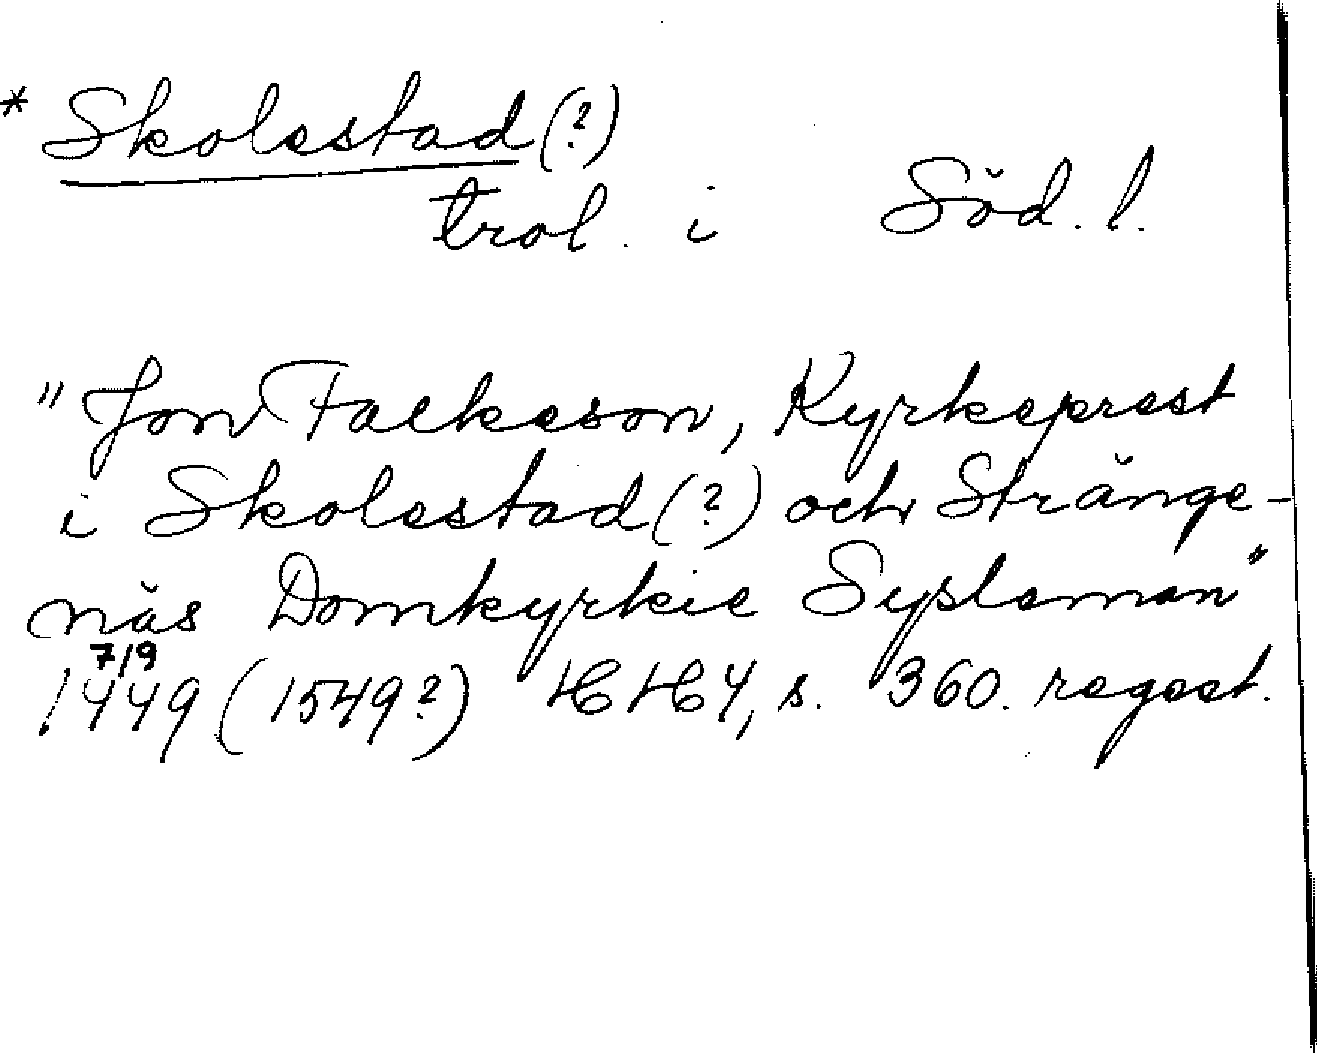 * Skolestad (?)
trol. i Söd. l.
"Jon Falkeson, Kyrkeprest
i Skolestad (?) och Stränge-
näs Domkyrkie Sysleman"
7/9
1449 (1549?) HH 4, s. 360. regest.